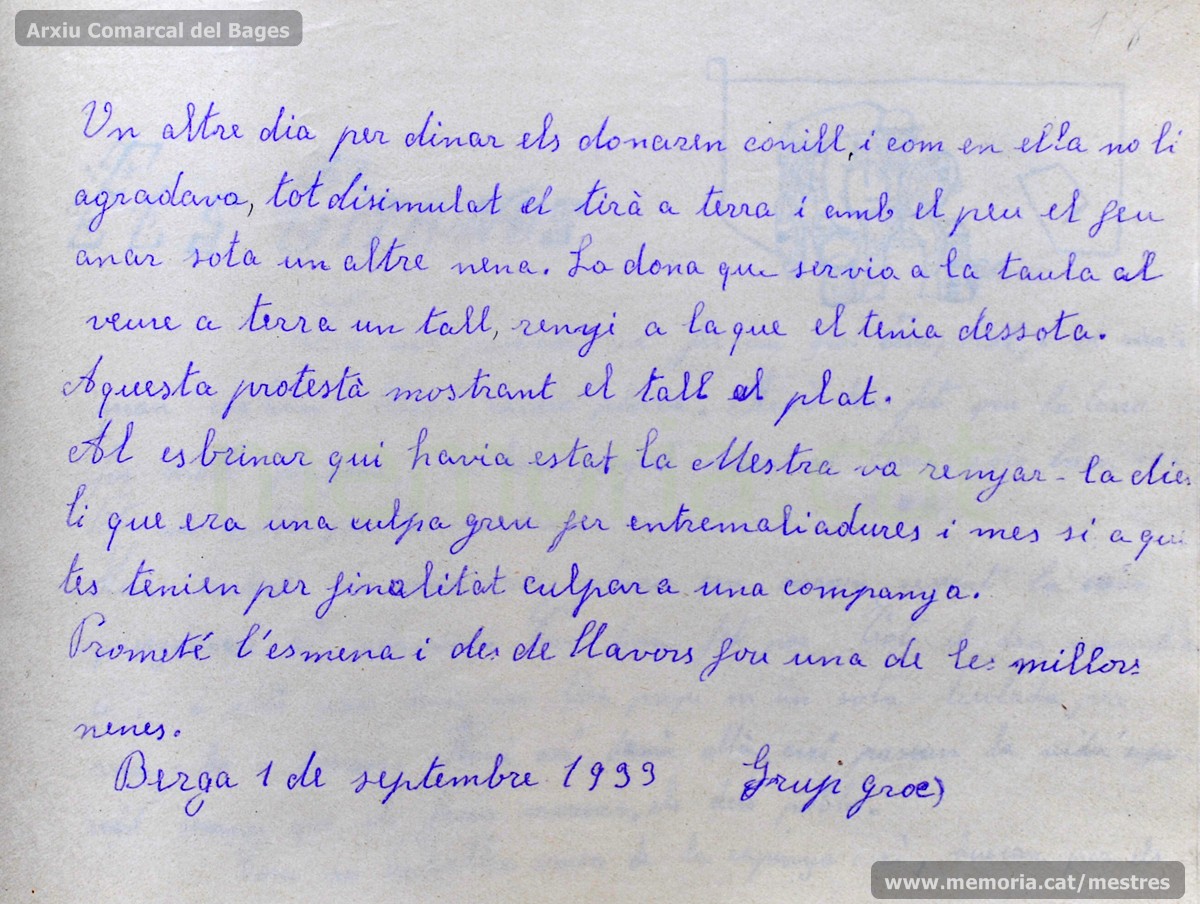 Arxiu Comarcal del Bages
Un altre dia per dinar els donaren conill, i com en ella no li
agradava, tot disimulat el tirà a terra i amb el peu el feu
anar sota un altre nena. La dona que servia a la taula al
veure a terra un tall, renyi a la que el tenia dessota.
Aquesta protestà mostrant el tall al plat.
Al esbrinar qui havia estat la Mestra va renyar-la dien
li que era una culpa greu fer entremaliadures i mes si aqui
tes tenien per finalitat culpar a una companya.
Prometé l'esmena i des de llavors fou una de les millors
nenes.
Berga 1 de septembre 1933 Grup groc)
memoria.cat
www.memoria.cat/mestres